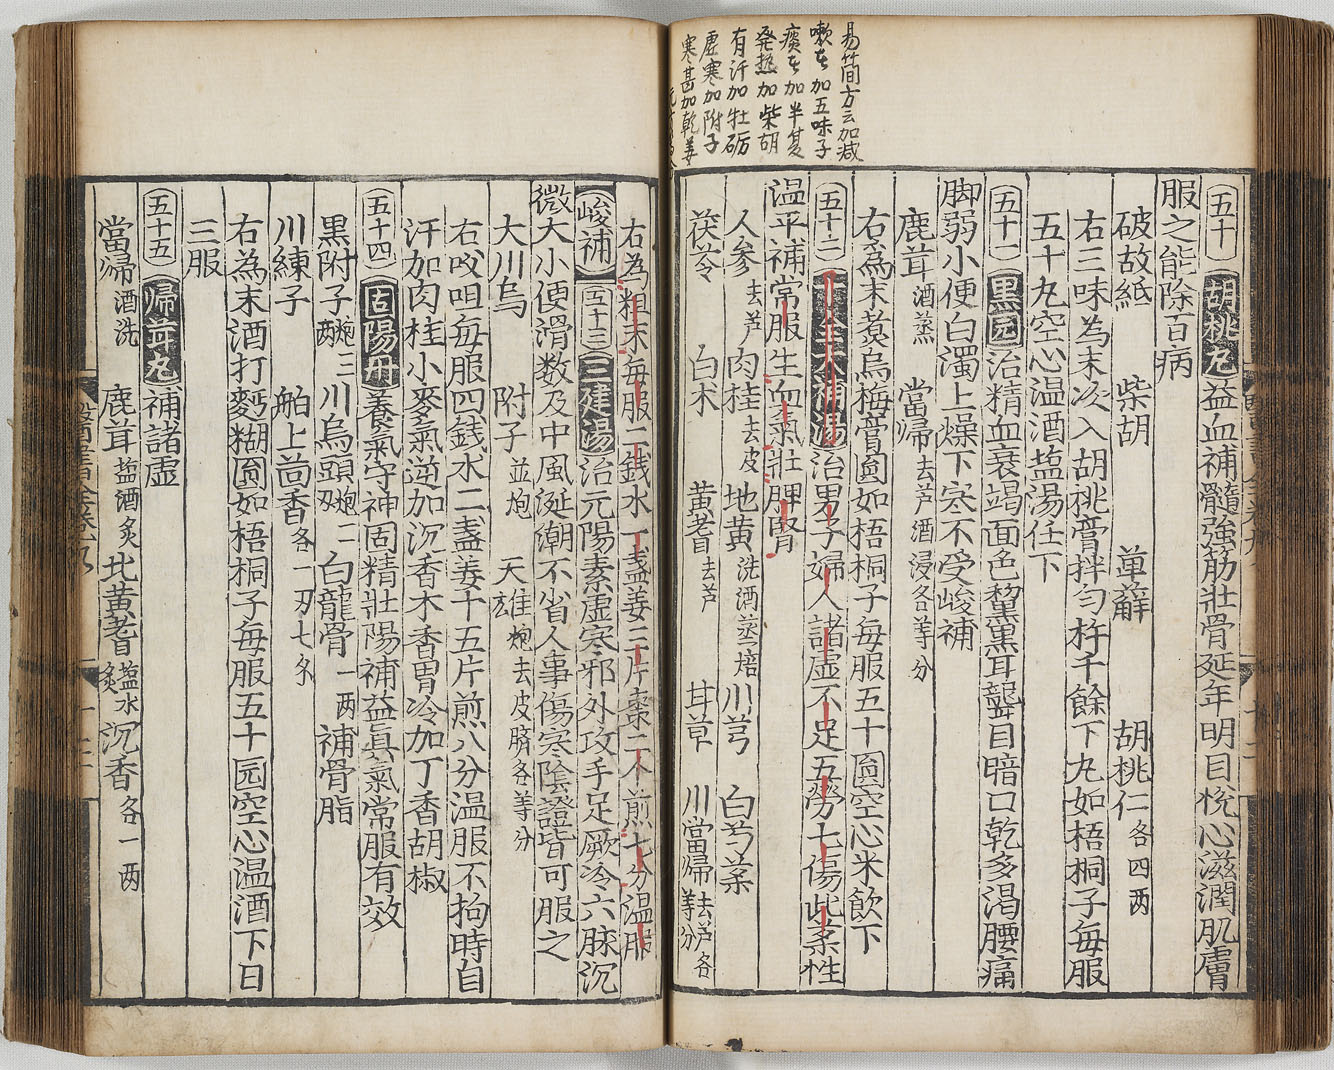 易简方云加减
嗽者加五味子
痰者加半夏
発热加柴胡
有汗加牡砺
虚寒加附子
寒甚加乾姜
五十 胡桃丸 益血補髓強筋壮骨延年明目悅心滋潤肌膚
服之能除百病
破故紙 柴胡 萆薢 胡桃仁各四两
右三味為末次入胡桃膏拌匀杵千餘下丸如梧桐子每服
五十丸空心温酒盐湯任下
五十一 黒园 治精血衰竭面色黧黒耳聾目暗口乾多渇腰痛
脚弱小便白濁上燥下寒不受峻補
鹿茸酒蒸 當帰去芦酒浸各等分
右為末煮烏梅膏圎如梧桐子每服五十圎空心米飲下
五十二 十全大補湯 治男子婦人諸虚不足五勞七傷此藥性
温平補常服生血氣壮脾腎
人参去芦 肉桂去皮 地黄洗酒蒸焙 川芎 白芍薬
茯苓 白朮 黄耆去芦 甘草 川當帰去芦各等分
右為粗末每服二銭水一盞姜三片棗二个煎七分温服
峻補 五十三 三建湯 治元陽素虚寒邪外攻手足厥冷六脉沉
微大小便滑数及中風涎潮不省人事傷寒陰證皆可服之
大川烏 附子並炮 天雄炮去皮臍各等分
右㕮咀每服四銭水二盞姜十五片煎八分温服不拘時自
汗加肉桂小麥氣逆加沉香木香胃冷加丁香胡椒
五十四 固陽丹 養氣守神固精壯陽補益真氣常服有效
黒附子炮三两 川烏頭炮二两 白龍骨一两 補骨脂
川練子 舶上茴香各一两七夕
右為末酒打麪糊圎如梧桐子每服五十园空心温酒下日
三服
五十五 帰茸丸 補諸虚
當帰酒洗 鹿茸盐酒炙 北黄耆盬水炙 沉香各一两